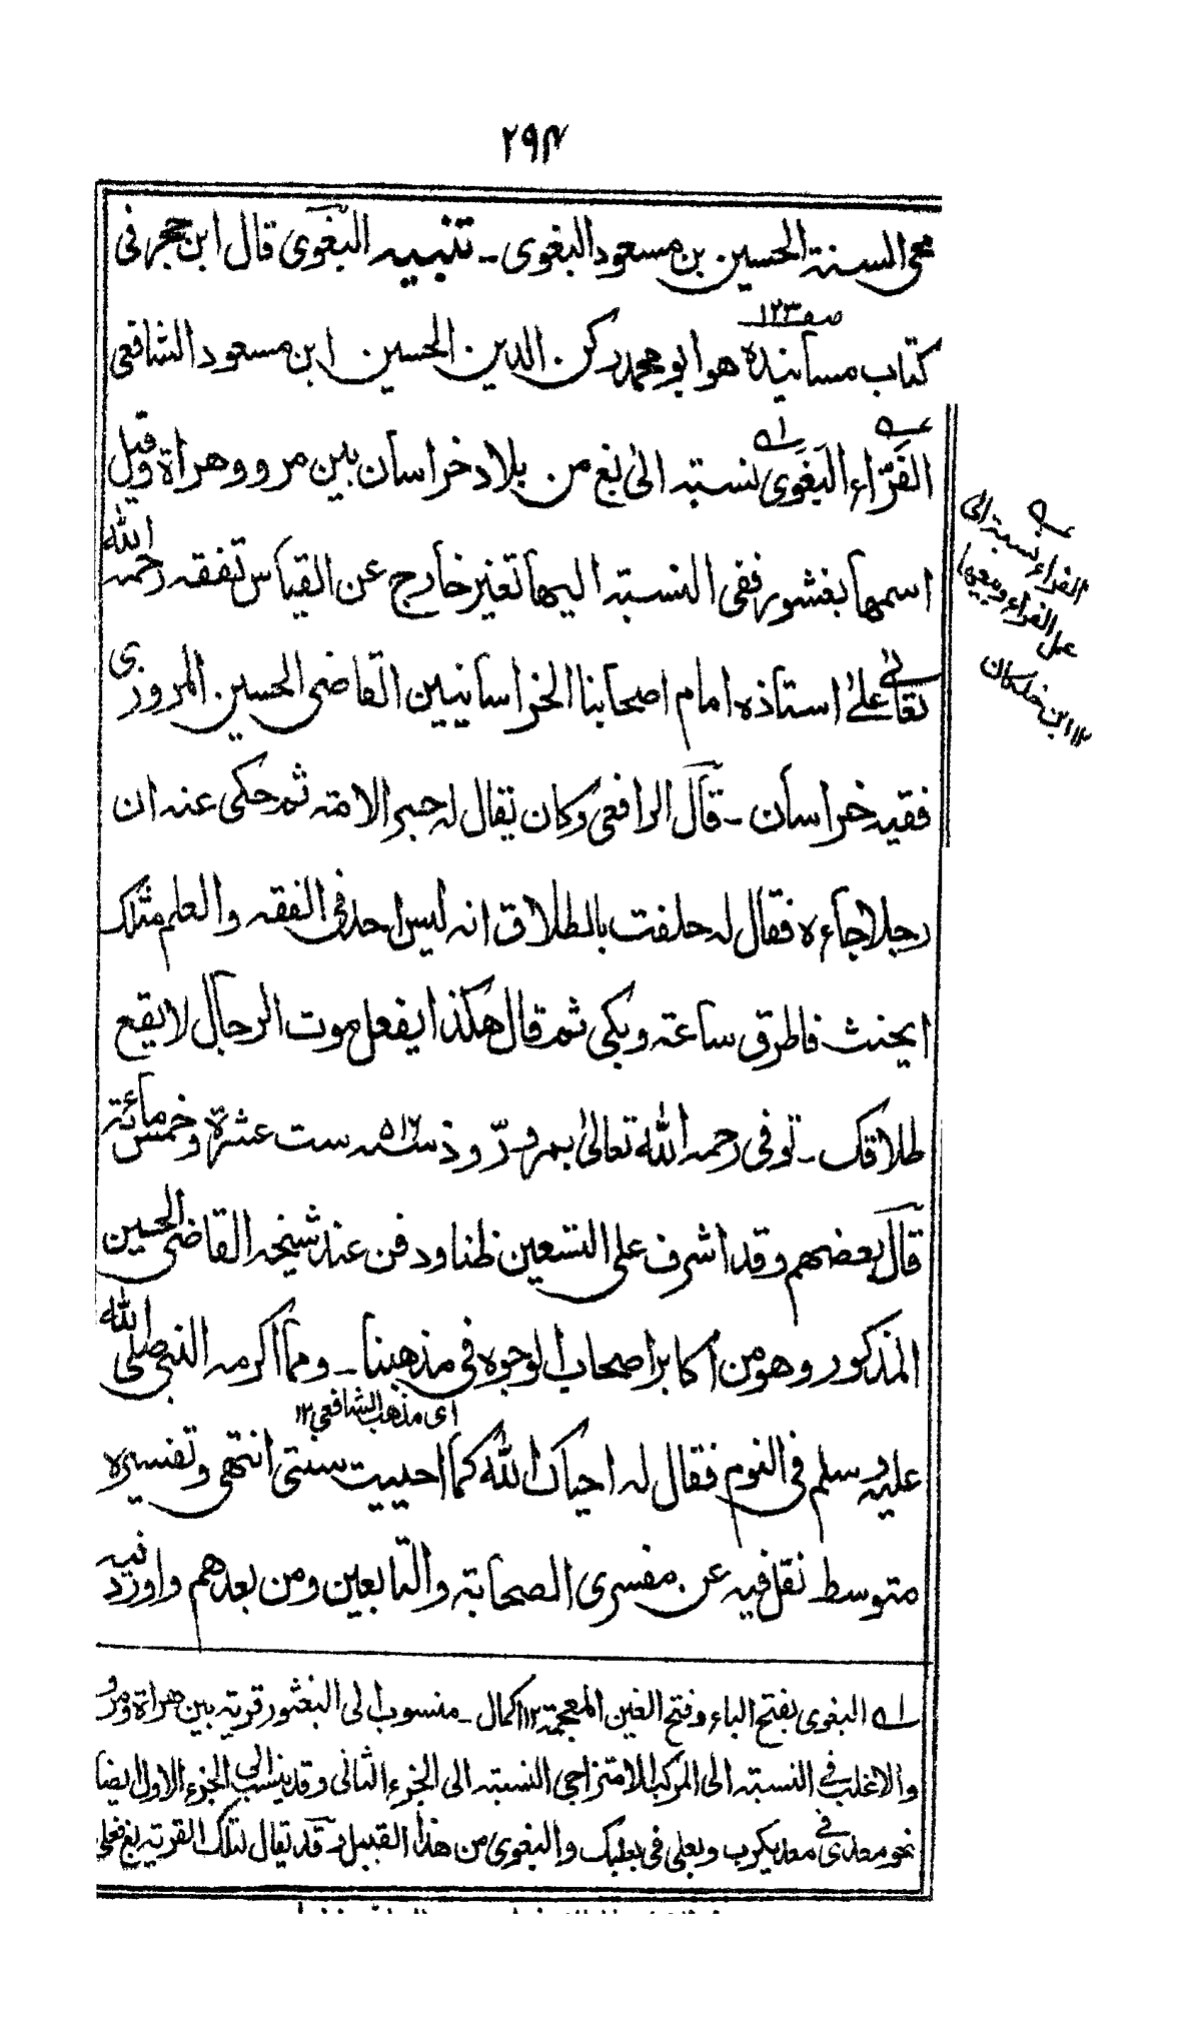 ٢٩٤
محی السنۃ الحسین بن مسعود البغوی ۔ تنبیہ البَغَوی قال ابن حجر فی
صفـ ١٢٣
کتاب مسانیدہ ھو ابو محمد رکن الدین الحسین ابن مسعود الشافعی
الفَرّاء البَغَوی نسبتہ الیٰ بغ من بلاد خراسان بین مرو وھراۃ وقیل
اسمھا بغشور ففی النسبتہ الیھا تغیر خارج عن القیاس تفقہ رحمہ اللہ
تعالیٰ علیٰ استاذہ امام اصحابنا الخراسانیین القاضی الحسین المروزی
فقیہ خراسان ۔ قال الرافعی وکان یقال لہ حبر الامتہ ثم حکی عنہ ان
رجلا جاءہ فقال لہ حلفت بالطلاق انہ لیس احد فی الفقہ والعلم مثلک
ایحنث فاطرق ساعتہ وبکی ثم قال ھکذا یفعل موت الرجال لا یقع
طلاقک ۔ توفی رحمہ اللہ تعالیٰ بمرو رّوذ سنہ ٥١٦ ست عشرۃ وخمس مائۃ
قال بعضھم وقد اشرف علی التسعین ظنا ودفن عند شیخہ القاضی الحسین
المذکور وھو من اکابر اصحاب الوجوہ فی مذھبنا ۔ ومما اکرمہ النبی صلی اللہ
ای مذھب الشافعی ١٢
علیہ وسلم فی النوم فقال لہ احیاک اللہ کما احییت سنتی انتھی وتفسیرہ
متوسط نقل فیہ عن مفسری الصحابتہ والتابعین ومن بعدھم واورد فیہ
الفراء نسبۃ الی
عمل الفراء وبیعھا
١٢ ابن خلکان
لہ البغوی بفتح الباء وفتح الغین المعجمۃ ١٢ اکمال ۔ منسوب الی البغشور قریۃ بین ھراۃ ومرو
والاغلب فی النسبتہ الی المرکب الامتزاجی النسبتہ الی الجزء الثانی وقد ینسب الی الجزء الاول ایضا
نحو معدی فی معدیکرب وبعلی فی بعلبک والبغوی من ھذا القبیل وقد یقال لتلک القریۃ بغ فعلی